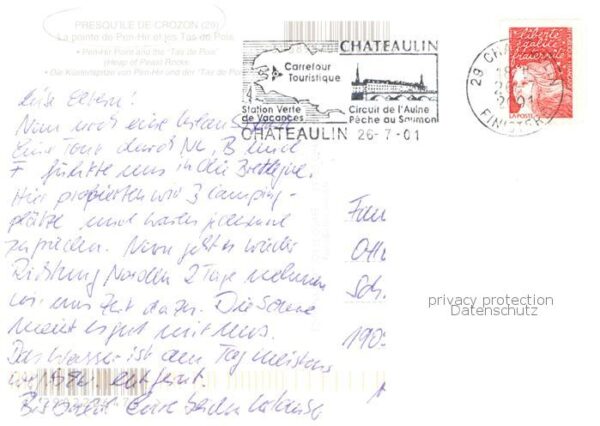 PRESQU'ILE DE CROZON (29)
La pointe de Pen-Hir et les Tas de Pois
• Pen-Hir Point and the "Tas de Pois"
(Heap of Peas) Rocks.
• Die Klarinspitze von Pen-Hir und der "Tas de Pois"
CHATEAULIN
Carrefour
Touristique
Station Verte
de Vacances
Circuit de l'Aulne
Pêche au Saumon
CHATEAULIN 26-7-01
29 CH
FINISTER
liberté
égalité
fraternité
LA POSTE
Liebe Eltern!
Nun noch eine
Eine Tour durch NL, B und
F führte uns in die Bretagne.
Hier probierten wir 3 Camping-
plätze und waren jedesmal
zufrieden. Nun geht es wieder
Richtung Norden 2 Tage nehmen
wir uns Zeit dazu. Die Sonne
meint es gut mit uns.
Das Wasser ist am Tag meistens
entfernt.
Bis bald Eure
Fam
Ott
Sch.
190
privacy protection
Datenschutz